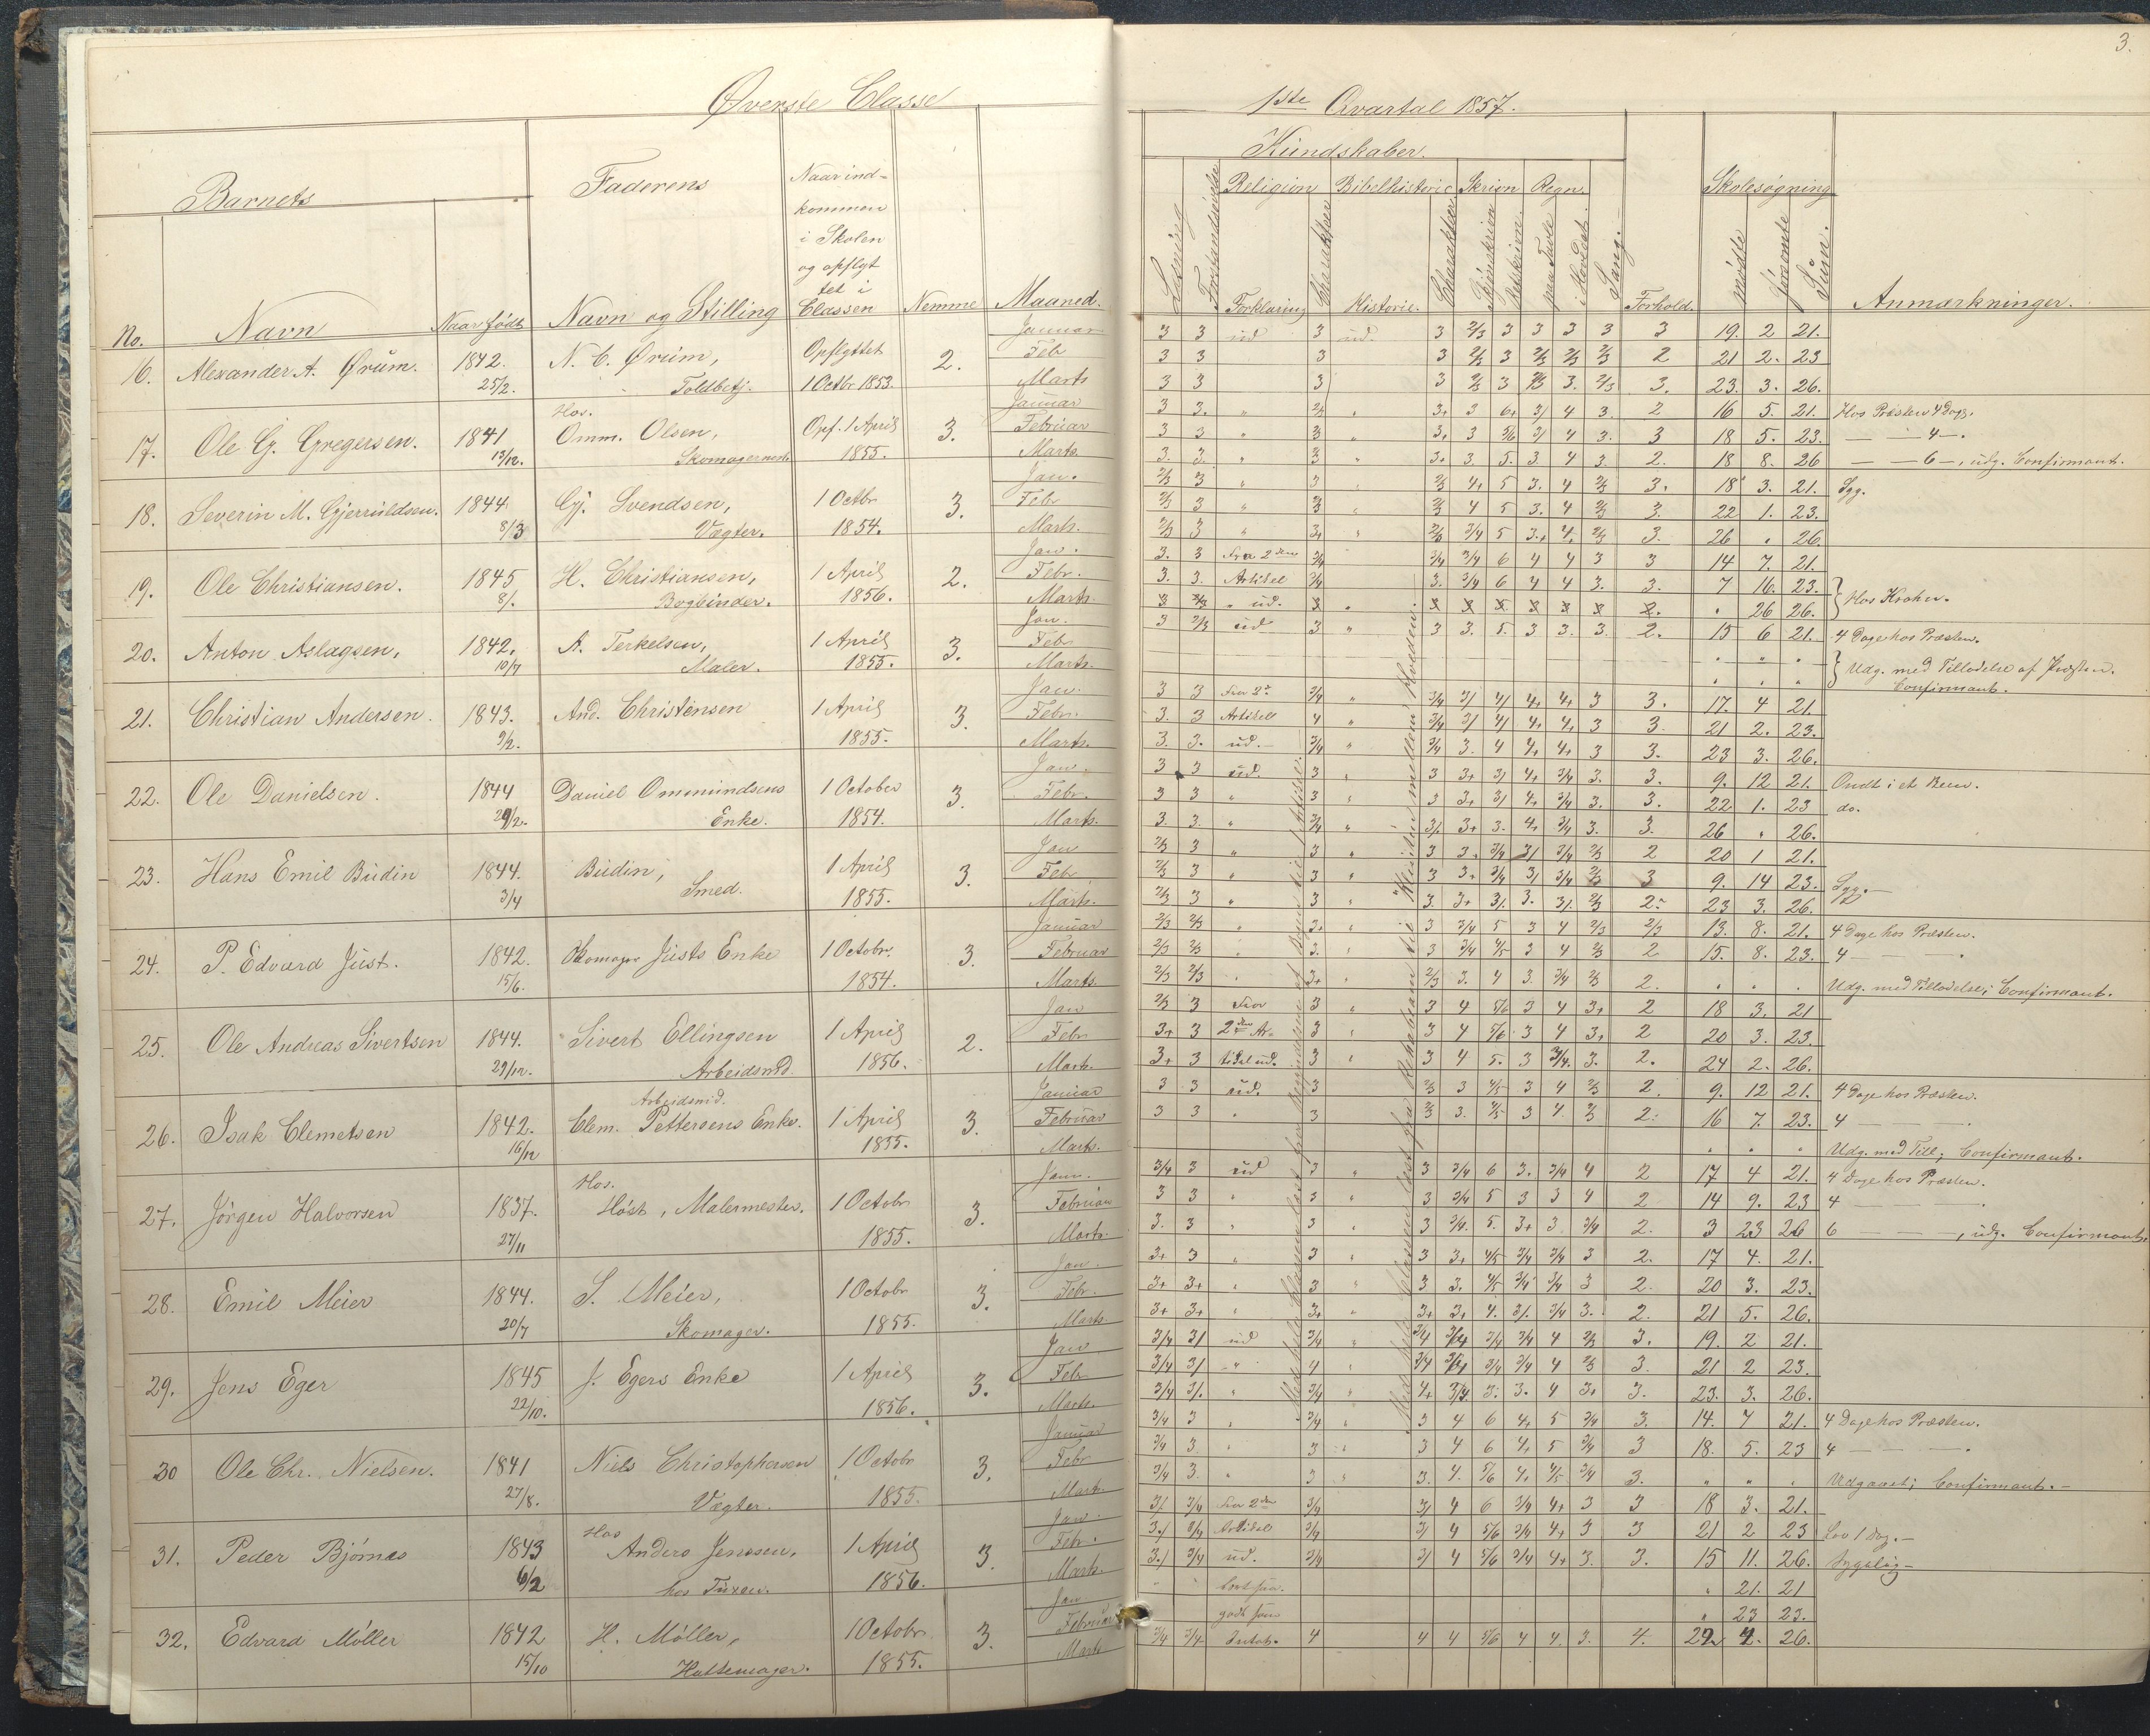 3.
Øverste Classe
1ste Qvartal 1857.
Barnets
Faderens
Naar ind-
kommen
i Skolen
og opflyt
tet i
Classen
Kundskaber.
Religion Bibelhistorie Skrivn Regn.
Skolesøgning
No. Navn Naar født Navn og Stilling Nemme Maaned.
Læsning Forklaring Charakteer Historie. Charakteer paa Tavle i Hovedet. Sang. Forhold. mødte forsømte Sum. Anmærkninger.
16. Alexander A. Ørum. 1842. 25/2. N. C. Ørum, Toldbetj. Opflyttet 1 Octbr 1853. 2.
Januar 3 3 ud 3 ud. 3 2/3 3 3 3 3 3 19. 2 21.
Feb 3 3 3 3 2/3 3 2/3 2/3 2/3 2 21 2. 23
Marts 3 3 3 3 2/3 3 2/3 3. 2/3 3. 23. 3. 26.
17. Ole G. Gregersen. 1841 13/12. Hos. Omm. Olsen, Skomagermest. Opf. 1 April 1855. 3.
Januar 3 3. " 3+ 3 6+ 3/ 4 3. 2 16 5. 21. Hos Præsten 4 Dage.
Februar 3 3 " 3 " 3+ 3 5/6 3/ 4 3. 3 18 5. 23. — — 4 —.
Marts. 3. 3. " 3 " 3+ 3. 5. 3. 4 3. 2. 18 8. 26 — 6 —, udg. Confirmant.
18. Severin M. Gjeruldsen. 1844 8/3 Gj. Svendsen, Vægter. 1 Octbr 1854. 3.
Jan. 2/3 3 " 3 2/3 4+ 5 3. 4 2/3 3. 18 3. 21. Syg.
Febr 2/3 3 " 2/3 4 5 3. 4 2/3 3. 22 1. 23.
Marts. 2/3 3 " 3+ " 2/3 3/4 5 3.+ 4. 2/3 3. 26 " 26.
19. Ole Christiansen. 1845 8/. H. Christiansen, Bogbinder. 1 April 1856. 2.
Jan. 3. 3 Fra 2den 3/4 3/4 3/4 6 4 4 3 3 14 7. 21.
Febr. 3. 3. Artikel 3/4 3. 3/4 6 4 4 3. 3. 7 16. 23.
Marts. 3 " ud. " 26 26. Hos Krohn.
20. Anton Aslagsen, 1842. 10/7 A. Terkelsen, Maler. 1 April 1855. 3.
Jan. 3 2/3 ud 3 " 3 3. 5. 3 3. 3. 2. 15 6 21. 4 Dage hos Præsten.
Feb " " "
Marts. " " " Udg. med Tilladelse af Præsten. Confirmant.
21. Christian Andersen. 1843. 9/2. And. Christensen 1 April 1855. 3.
Jan. 3 3 Fra 2d 3/4 " 3/4 3/ 4/ 4+ 4+ 3 3. 17. 4 21.
Febr. 3. 3 Artikel 4 " 3/4 3/ 4/ 4+ 4+ 3 3. 21 2. 23.
Marts. 3. 3. ud. 3/4 " 3/4 3. 4 4+ 4+ 3 3. 23 3. 26.
22. Ole Danielsen. 1844 29/2. Daniel Ommundsens Enke. 1 October 1854. 3.
Jan. 3 3 ud. 3 " 3 3+ 3/ 4+ 3/4 3. 3. 9. 12 21. Ondt i et Been.
Febr. 3 3 " 3 " 3 3+ 3/ 4+ 3/4 3. 3. 22 1. 23 do.
Marts. 3 3. " " 3/. 3+ 3. 4+ 3/4 3. 3. 26 " 26.
23. Hans Emil Budin 1844. 3/4 Budin, Smed. 1 April 1855. 3.
Jan 2/3 3 " 3 " 3 3+ 3/4 3/ 3/4 2/3 2 20 1 21.
Feb 2/3 3 " 3 " 3 3+ 3/4 3/ 3/4 2/3 3 9. 14 23. Syg. —
Marts. 2/3 3 " 3 " 3. 3+ 3/. 3. 3/. 2/3 2. 23 3. 26.
24. P. Edvard Just. 1842. 15/6. Skomager Justs Enke 1 Octobr. 1854. 3.
Januar 2/3 2/3 " 3+ " 3 3/4 5 3 4 2/3 2/3 13. 8. 21. 4 Dage hos Præsten.
Februar 2/3 2/3 " 3. " 3 3/4 4/5 3 4 2/3 2 15. 8. 23. 4 — — —.
Marts. 2/3 2/3 " 3+ " 2/3 3. 4 3. 3/4 2/3 2. " " " Udg. med Tilladelse; Confirmant.
25. Ole Andreas Sivertsen 1844. 29/12. Sivert Ellingsen Arbeidsmd. 1 April 1856. 2.
Jan 2/3 3 Fra 3 " 3 4 5/6 3 4 3+ 2 18 3. 21
Febr 3+ 3 2den Ar- 3 " 3 4 5/6 3 4 3+ 2 20 3. 23.
Marts. 3+ 3 tikel ud. 3 " 3 4 5. 3 3/4. 3. 2. 24 2. 26.
26. Isak Clemetsen 1842. 16/12 Arbeidsmd. Clem. Pettersens Enke. 1 April 1855. 3.
Januar 3 3 ud. 3 2/3 3 4/5 3 4 2/3 2. 9. 12 21. 4 Dage hos Præsten.
Februar 3 3 " 3 2/3 3. 4/5 3 4. 2/3 2. 16 7. 23. 4 — — —.
Marts. " " " Udg. med Till; Confirmant.
27. Jørgen Halvorsen 1837. 27/11 Hos. Høst, Malermester. 1 Octobr 1855. 3.
Jan. 3/4 3 ud 3 " 3 3/4 6 3. 3/4 4 2 17 4 21. 4 Dage hos Præsten.
Februar 3 3 " 3 " 3 3/4 5 3 3 4 2 14 9. 23 4 — — —.
Marts. 3. 3 " 3 " 3 3/4. 5. 3+ 3. 3/4 2. 3 23 26 6 — — —, udg. Confirmant.
28. Emil Meier 1844. 20/7 S. Meier, Skomager. 1 Octobr 1855. 3.
Jan. 3+ 3 " 3 " 3 3+ 4/5 3/4 3/4 3 2. 17 4. 21.
Febr. 3+ 3+ " 3 " 3 3. 4/5 3/4 3/4 3 2. 20 3. 23.
Marts 3+ 3+ " 3+ " 3+ 3+ 4. 3/. 3/4 3. 2. 21 5. 26.
29. Jens Eger 1845 22/10. J. Egers Enke 1 April 1856. 3.
Jan 3/4 3/ ud 3/4 " 3/4 3/4 3/4 3/4 4 2/3 3. 19. 2 21.
Feb 3/4 3/ " 4 " 3/4 3/4 3/4 3/4 4 2/3 3. 21 2 23.
Marts. 3/4 3/. " 3/4 " 4+ 3/4. 3. 3. 4 3+ 3. 23. 3. 26.
30 Ole Chr. Nielsen. 1841 27/8. Niels Christophersen Vægter. 1 Octobr 1855. 3.
Januar 3/4 3 " 3/4 " 3 4 6 4+ 5 3/4 3. 14. 7 21. 4 Dage hos Præsten.
Febr 3/4 3. " 3 " 3 4 6 4+ 5 3/4 3 18. 5. 23 4 — — —.
Marts. 3/4 3. " 3 " 3. 4. 5/6 4+ 4/5 3/4 3. " " " Udgaaet; Confirmant. —
31. Peder Bjørnes 1843 6/2 Hos Anders Jenssen, hos Tuxen. 1 April 1856. 3.
Jan. 3/ 3/4 Fra 2den 3/4 3/ 4 6 3/4 4+ 3 3 18 3. 21.
Febr. 3./ 3/4 Artikel 3/4 3/ 4 5/6 3/4 4+ 3 3 21 2 23 Lov 1 Dag. —
Marts. 3./ 3/4 ud. 3/4 3/ 4 5/6 3/4 4+ 3. 3. 15 11. 26. Sygelig —
32. Edvard Møller 1842 15/10 H. Møller, Hattemager. 1 Octobr. 1855. 3.
Jan " 21. 21
Februar " 23 23.
Marts 3/4 3/4 4 4 4 5/6 4 4. 3. 4. 22 4. 26.